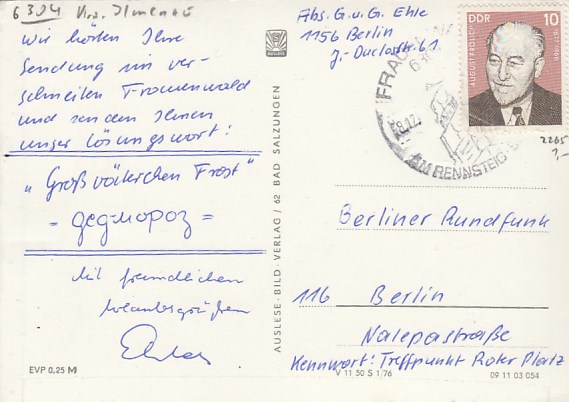 6304 Krs. Ilmenau
Wir hörten Ihre
Sendung im ver-
schneiten Frauenwald
und senden Ihnen
unser Lösungswort:
"Großväterchen Frost"
= дедмороз =
Mit freundlichen
Urlaubsgrüßen
EVP 0,25 M
AUSLESE-BILD-VERLAG / 62 BAD SALZUNGEN
Abs. G. u. G. Ehle
1156 Berlin
J.-Duclosstr. 61
DDR 10
AM RENNSTEIG
2265
Berliner Rundfunk
116 Berlin
Nalepastraße
Kennwort: Treffpunkt Roter Platz
V 11 50 S 1/76
09 11 03 054